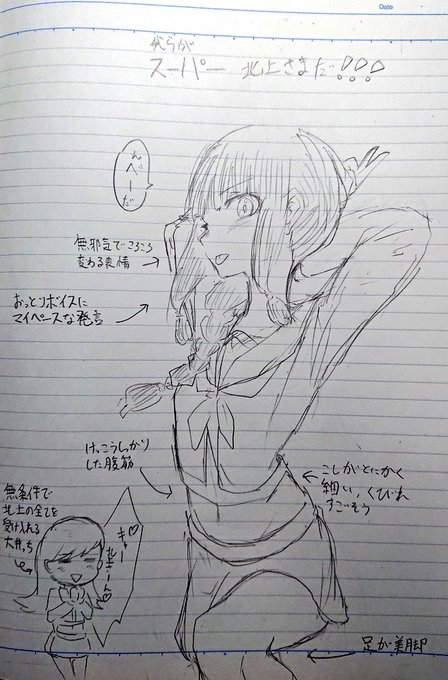 Date
我らが
スーパー 北上さまだ!!!
んべーだ
無邪気でころころ
変わる表情
おっとりボイスに
マイペースな発言
けっこうしっかり
した腹筋
こしがとにかく
細い、くびれ
すごそう
無条件で
北上の全てを
受け入れる
大井っち
キャー♡
北上さーん♡
足が美脚